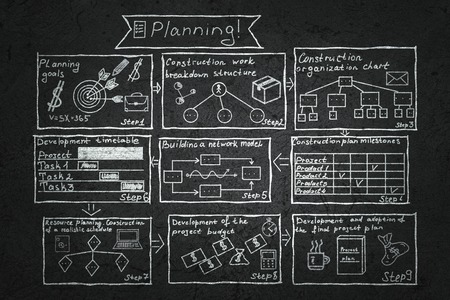 Planning!
Planning
goals
$
$
V=5X=365
Step1
Construction work
breakdown structure
Step2
Construction
organization chart
Step 3
Development timetable
Project
Task1
Task2
Task3
Step6
Building a network model
Step5
Construction plan milestones
Project
Product 1
Product 2
Product3
Product
Step 4
Resource planning. Construction
of a realistic schedule
Step7
Development of the
project budget
Step8
Development and adoption of
the final project plan
Project
plan
Step9